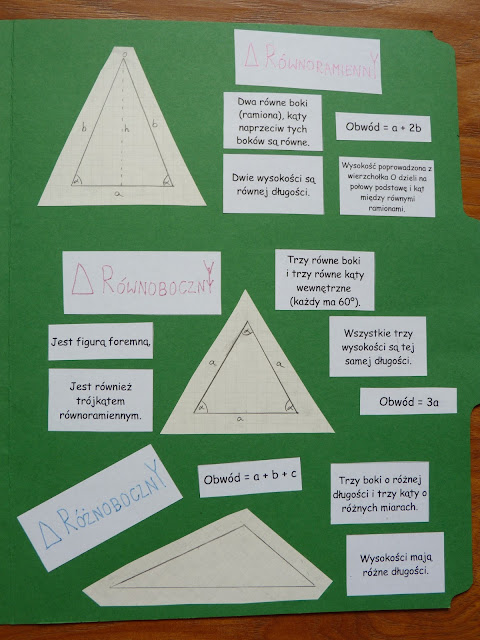 Δ RÓWNORAMIENNY
O
b
h
b
α
α
a
Dwa równe boki
(ramiona), kąty
naprzeciw tych
boków są równe.
Obwód = a + 2b
Dwie wysokości są
równej długości.
Wysokość poprowadzona z
wierzchołka O dzieli na
połowy podstawę i kąt
między równymi
ramionami.
Δ RÓWNOBOCZNY
Trzy równe boki
i trzy równe kąty
wewnętrzne
(każdy ma 60°).
Jest figurą foremną,
α
a
a
α
α
a
Wszystkie trzy
wysokości są tej
samej długości.
Jest również
trójkątem
równoramiennym.
Obwód = 3a
Δ RÓŻNOBOCZNY
Obwód = a + b + c
Trzy boki o różnej
długości i trzy kąty o
różnych miarach.
Wysokości mają
różne długości.